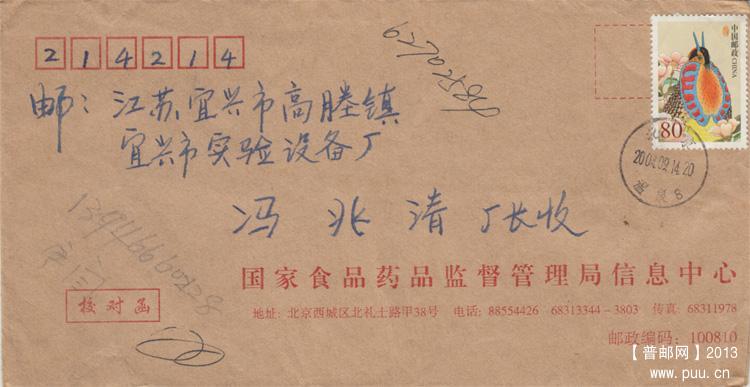 中国邮政 CHINA
80
2004.09.14.20
温泉8
214214
邮：江苏宜兴市高塍镇
宜兴市实验设备厂
冯兆清 厂长收
国家食品药品监督管理局信息中心
校对函
地址：北京西城区北礼士路甲38号 电话：88554426 68313344-3803 传真：68311978
邮政编码：100810
【普邮网】2013
www.puu.cn